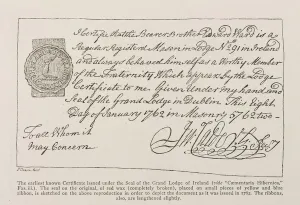 I Certifye that the Bearer Brother Edward Ward is a
Regular Registered Mason in Lodge No 291 in Ireland
and always behaved himself as a Worthy Member
of the Fraternity Which appears by the Lodge
Certificate to me. Given Under my hand and
Seal of the Grand Lodge in Dublin This Eight
Day of January 1762 in Masonry 5762
To all Whom it
May Concern
The earliest known Certificate issued under the Seal of the Grand Lodge of Ireland
The seal on the original, of red wax (completely broken), placed on small pieces of yellow and blue
ribbon, is sketched on the above reproduction in order to depict the document as it was issued in 1762. The ribbons,
also, are lengthened slightly.